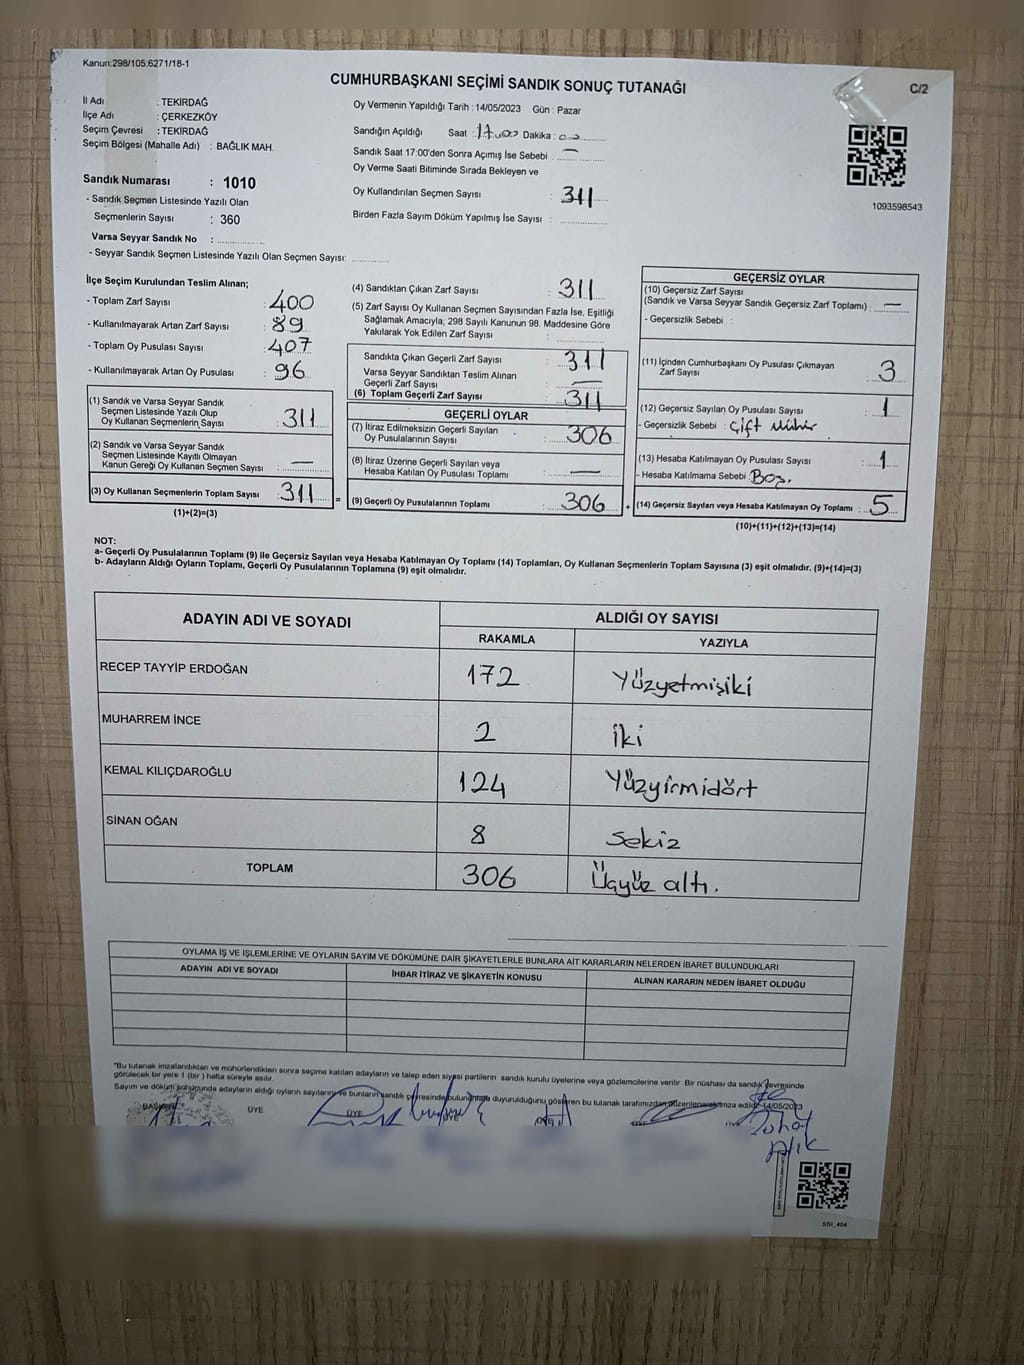 Kanun:298/105:6271/18-1
CUMHURBAŞKANI SEÇİMİ SANDIK SONUÇ TUTANAĞI
C/2
İl Adı : TEKİRDAĞ
İlçe Adı : ÇERKEZKÖY
Seçim Çevresi : TEKİRDAĞ
Seçim Bölgesi (Mahalle Adı) : BAĞLIK MAH.
Sandık Numarası : 1010
- Sandık Seçmen Listesinde Yazılı Olan
Seçmenlerin Sayısı : 360
Varsa Seyyar Sandık No :
- Seyyar Sandık Seçmen Listesinde Yazılı Olan Seçmen Sayısı:
Oy Vermenin Yapıldığı Tarih : 14/05/2023 Gün : Pazar
Sandığın Açıldığı Saat : 17:00 Dakika :
Sandık Saat 17:00'den Sonra Açımış İse Sebebi : —
Oy Verme Saati Bitiminde Sırada Bekleyen ve
Oy Kullandırılan Seçmen Sayısı : 311
Birden Fazla Sayım Döküm Yapılmış İse Sayısı :
1093598543
İlçe Seçim Kurulundan Teslim Alınan;
- Toplam Zarf Sayısı : 400
- Kullanılmayarak Artan Zarf Sayısı : 89
- Toplam Oy Pusulası Sayısı : 407
- Kullanılmayarak Artan Oy Pusulası : 96
(1) Sandık ve Varsa Seyyar Sandık
Seçmen Listesinde Yazılı Olup
Oy Kullanan Seçmenlerin Sayısı : 311
(2) Sandık ve Varsa Seyyar Sandık
Seçmen Listesinde Kayıtlı Olmayan
Kanun Gereği Oy Kullanan Seçmen Sayısı : —
(3) Oy Kullanan Seçmenlerin Toplam Sayısı : 311 =
(1)+(2)=(3)
(4) Sandıktan Çıkan Zarf Sayısı : 311
(5) Zarf Sayısı Oy Kullanan Seçmen Sayısından Fazla İse, Eşitliği
Sağlamak Amacıyla; 298 Sayılı Kanunun 98. Maddesine Göre
Yakılarak Yok Edilen Zarf Sayısı :
Sandıkta Çıkan Geçerli Zarf Sayısı : 311
Varsa Seyyar Sandıktan Teslim Alınan
Geçerli Zarf Sayısı : —
(6) Toplam Geçerli Zarf Sayısı : 311
GEÇERLİ OYLAR
(7) İtiraz Edilmeksizin Geçerli Sayılan
Oy Pusulalarının Sayısı : 306
(8) İtiraz Üzerine Geçerli Sayılan veya
Hesaba Katılan Oy Pusulası Toplamı : —
(9) Geçerli Oy Pusulalarının Toplamı : 306 +
GEÇERSİZ OYLAR
(10) Geçersiz Zarf Sayısı
(Sandık ve Varsa Seyyar Sandık Geçersiz Zarf Toplamı) : —
- Geçersizlik Sebebi :
(11) İçinden Cumhurbaşkanı Oy Pusulası Çıkmayan
Zarf Sayısı : 3
(12) Geçersiz Sayılan Oy Pusulası Sayısı : 1
- Geçersizlik Sebebi : Çift Mühür
(13) Hesaba Katılmayan Oy Pusulası Sayısı : 1
- Hesaba Katılmama Sebebi : Boş.
(14) Geçersiz Sayılan veya Hesaba Katılmayan Oy Toplamı : 5
(10)+(11)+(12)+(13)=(14)
NOT:
a- Geçerli Oy Pusulalarının Toplamı (9) ile Geçersiz Sayılan veya Hesaba Katılmayan Oy Toplamı (14) Toplamları, Oy Kullanan Seçmenlerin Toplam Sayısına (3) eşit olmalıdır. (9)+(14)=(3)
b- Adayların Aldığı Oyların Toplamı, Geçerli Oy Pusulalarının Toplamına (9) eşit olmalıdır.
ADAYIN ADI VE SOYADI ALDIĞI OY SAYISI
RAKAMLA YAZIYLA
RECEP TAYYİP ERDOĞAN 172 Yüzyetmişiki
MUHARREM İNCE 2 İki
KEMAL KILIÇDAROĞLU 124 Yüzyirmidört
SİNAN OĞAN 8 Sekiz
TOPLAM 306 Üçyüz altı.
OYLAMA İŞ VE İŞLEMLERİNE VE OYLARIN SAYIM VE DÖKÜMÜNE DAİR ŞİKAYETLERLE BUNLARA AİT KARARLARIN NELERDEN İBARET BULUNDUKLARI
ADAYIN ADI VE SOYADI İHBAR İTİRAZ VE ŞİKAYETİN KONUSU ALINAN KARARIN NEDEN İBARET OLDUĞU
"Bu tutanak imzalandıktan ve mühürlendikten sonra seçime katılan adayların ve talep eden siyasi partilerin sandık kurulu üyelerine veya gözlemcilerine verilir. Bir nüshası da sandık çevresinde
görülecek bir yere 1 (bir) hafta süreyle asılır.
Sayım ve döküm sonucunda adayların aldığı oyların sayılarını ve bunların sandık çevresinde bulunanlara duyurulduğunu gösteren bu tutanak tarafımızdan düzenlenerek imza edildi. 14/05/2023
BAŞKAN ÜYE ÜYE ÜYE ÜYE ÜYE ÜYE
SSI_404